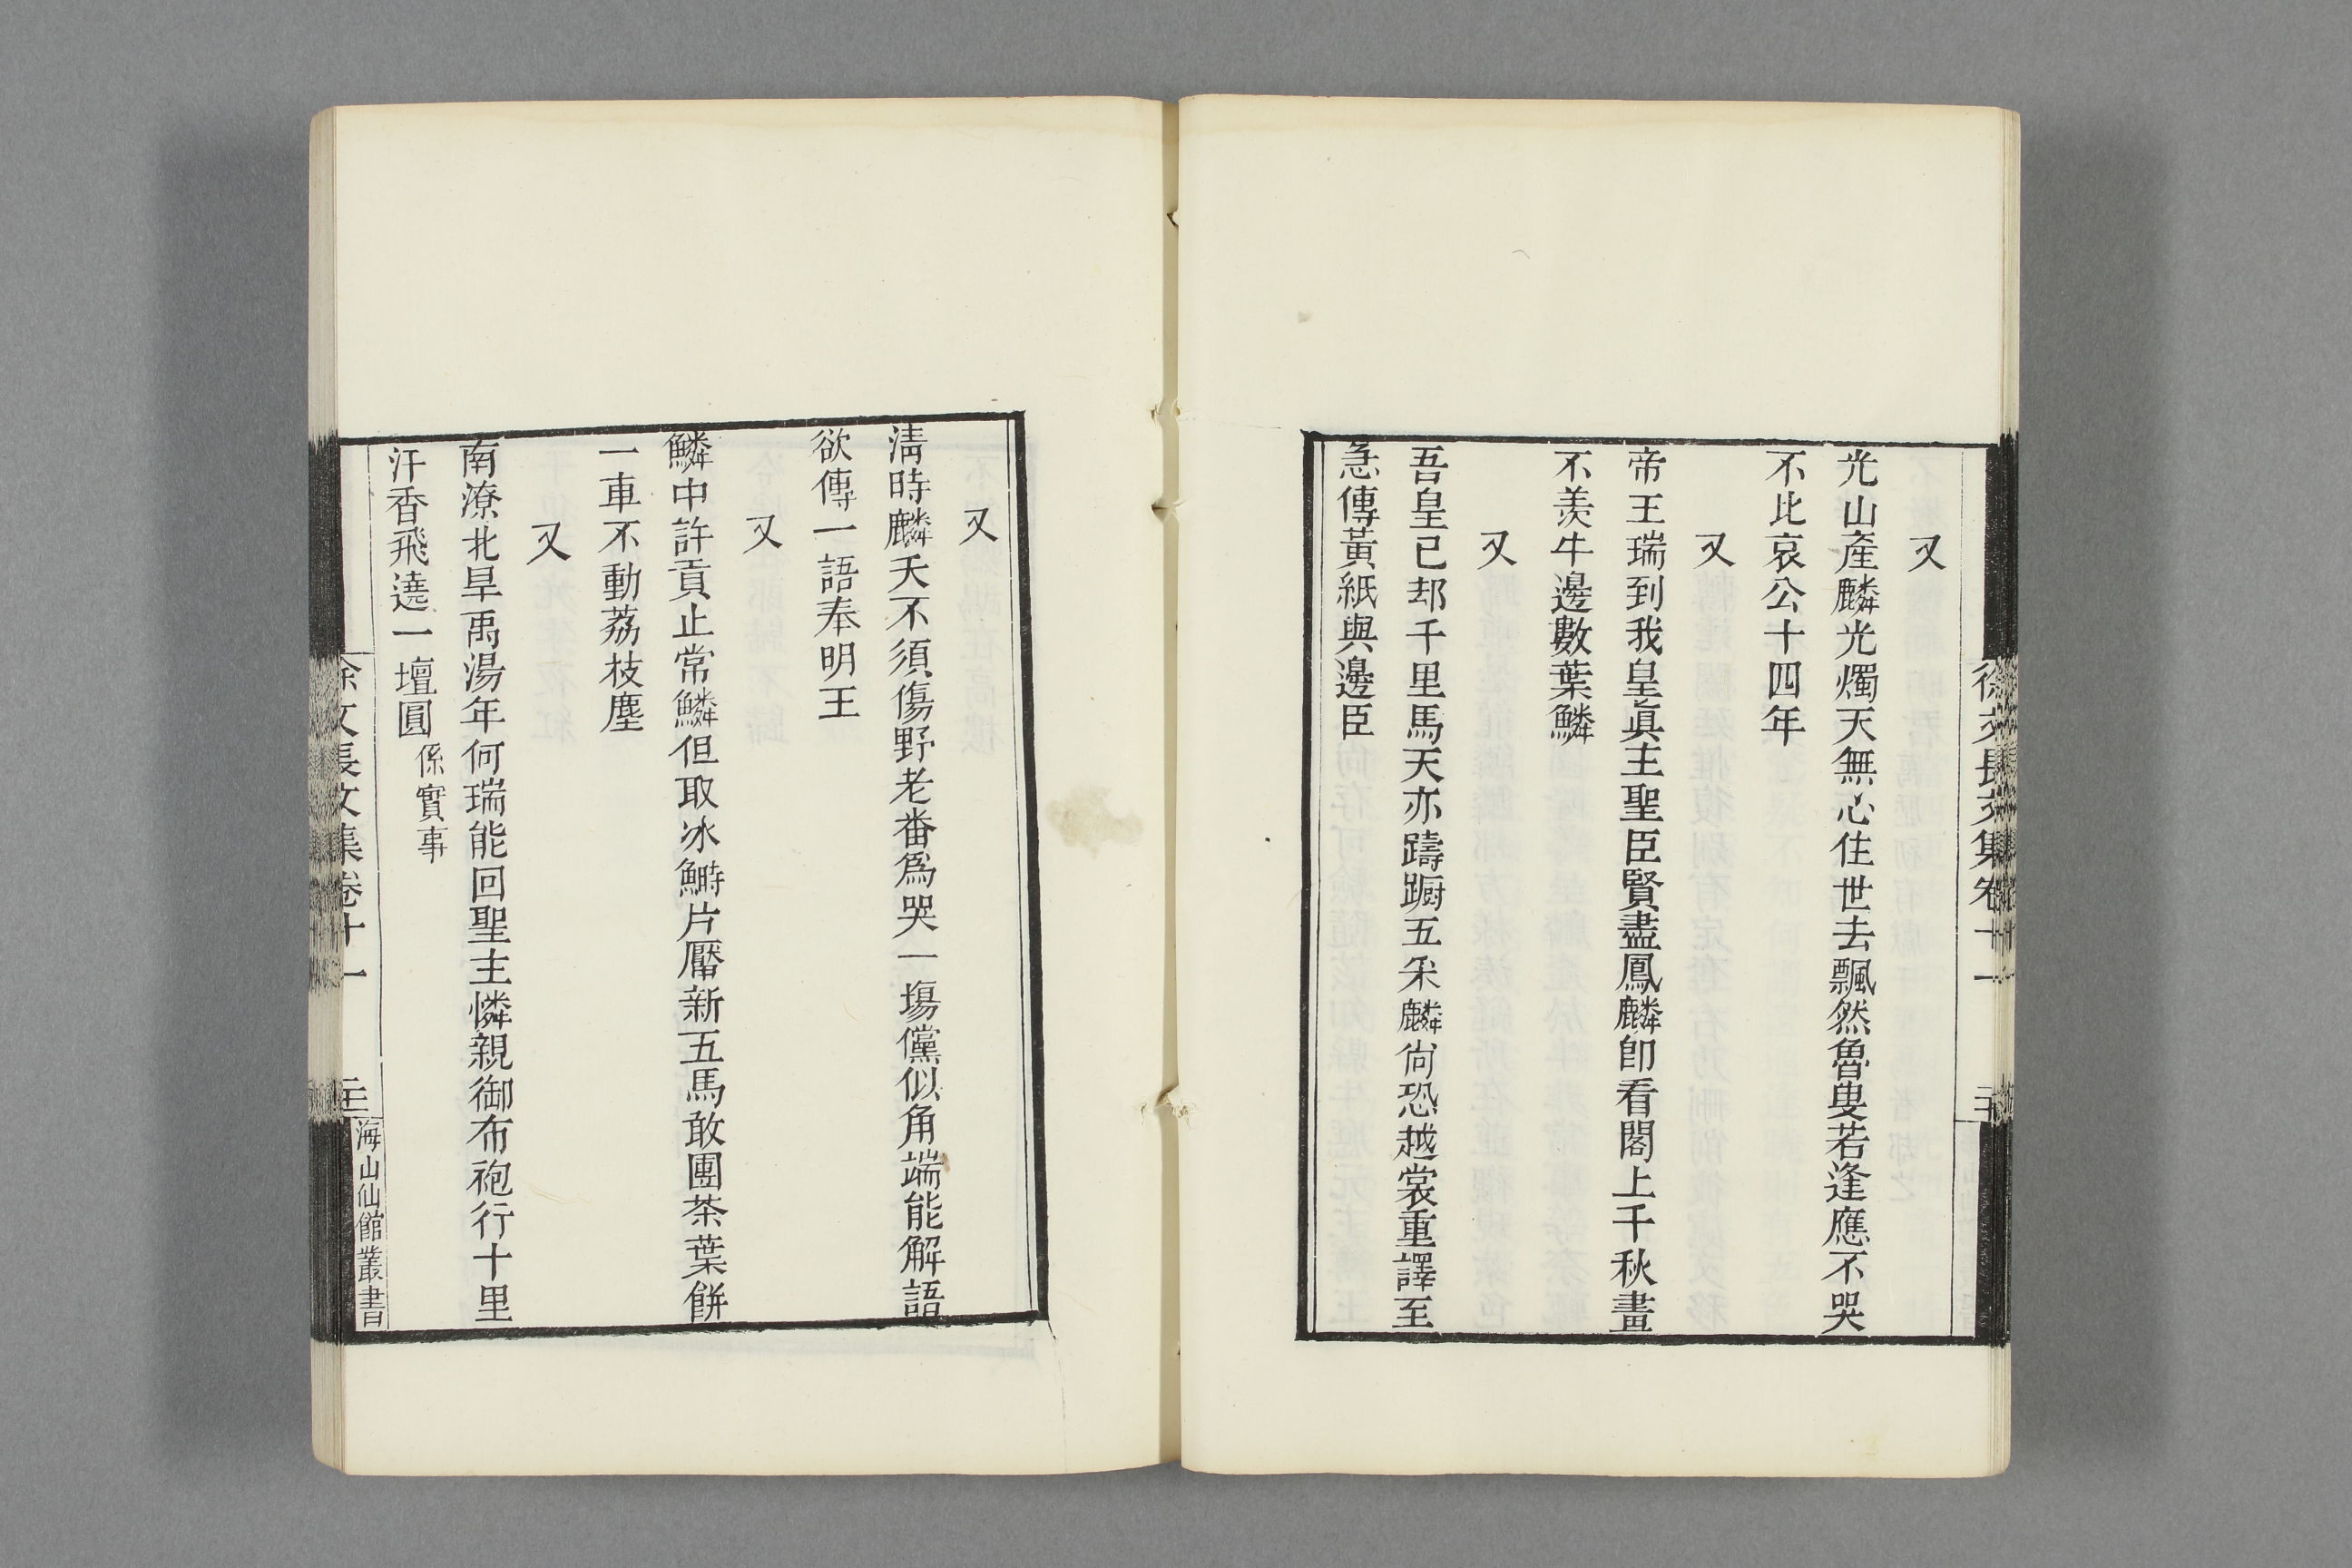 又
光山產麟光燭天無心住世去飄然魯叟若逢應不哭
不比哀公十四年
又
帝王瑞到我皇眞主聖臣賢盡鳳麟卽看閣上千秋畫
不羨牛邊數葉鱗
又
吾皇已却千里馬天亦躊蹰五采麟尙恐越裳重譯至
急傳黃紙與邊臣
徐文長文集卷十一
又
淸時麟夭不須傷野老番爲哭一塲儻似角端能解語
欲傳一語奉明王
又
鱗中許貢止常鱗但取冰鰣片靨新五馬敢團茶葉餅
一車不動荔枝塵
又
南潦北旱禹湯年何瑞能回聖主憐親御布袍行十里
汗香飛遶一壇圓係實事
徐文長文集卷十一
海山仙館叢書